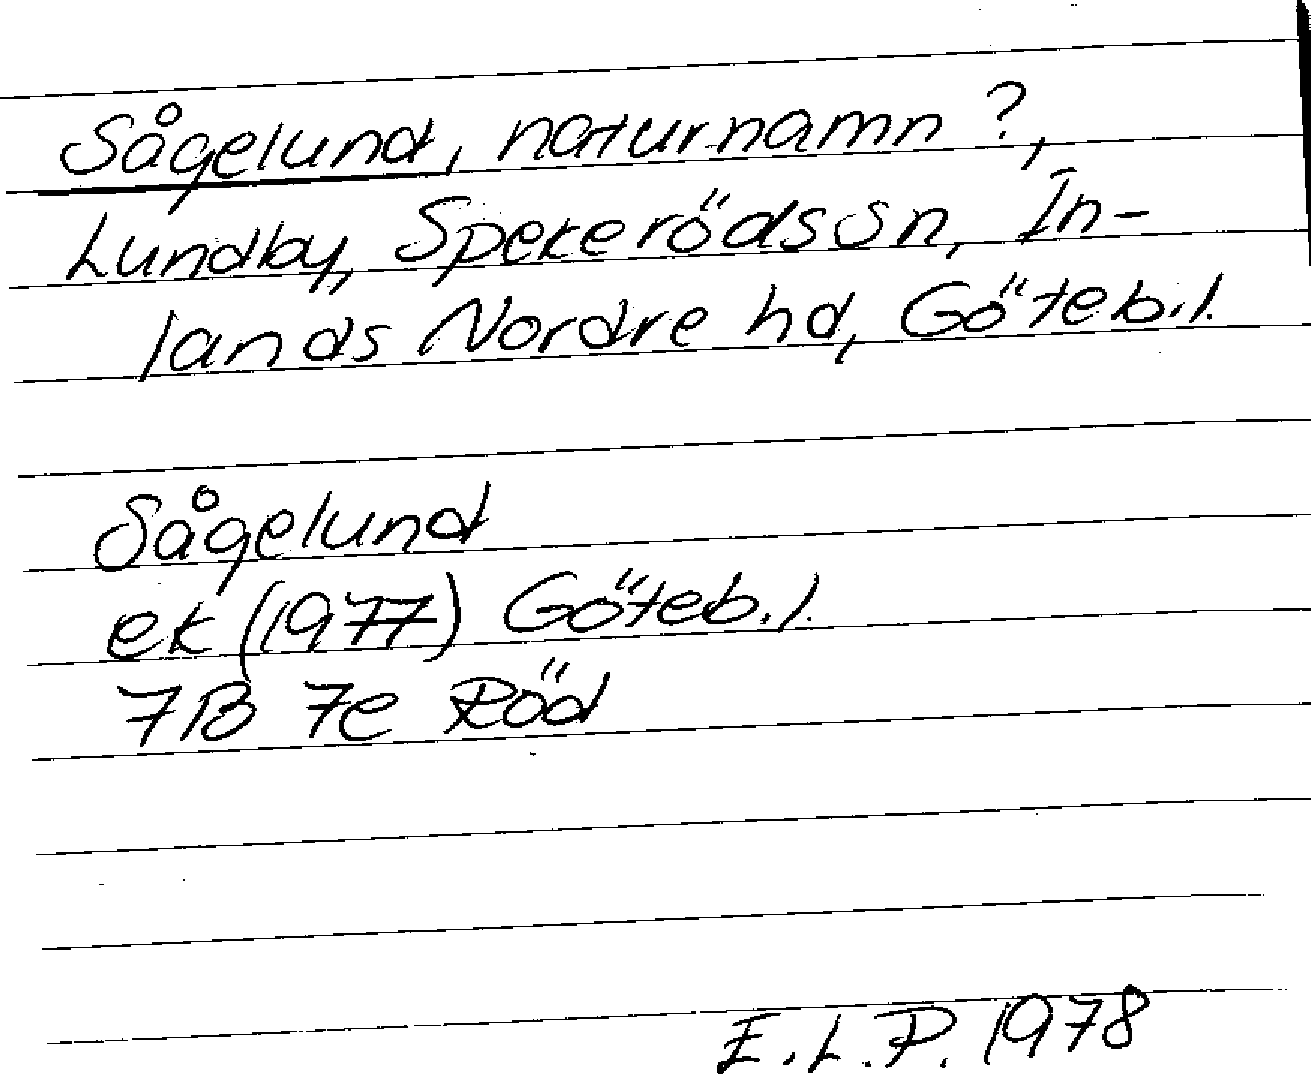 Sågelund, naturnamn?,
Lundby, Spekeröds sn, In-
lands Nordre hd, Göteb.l.
Sågelund
ek (1977) Göteb.l.
7B 7e Röd
E.L.P. 1978